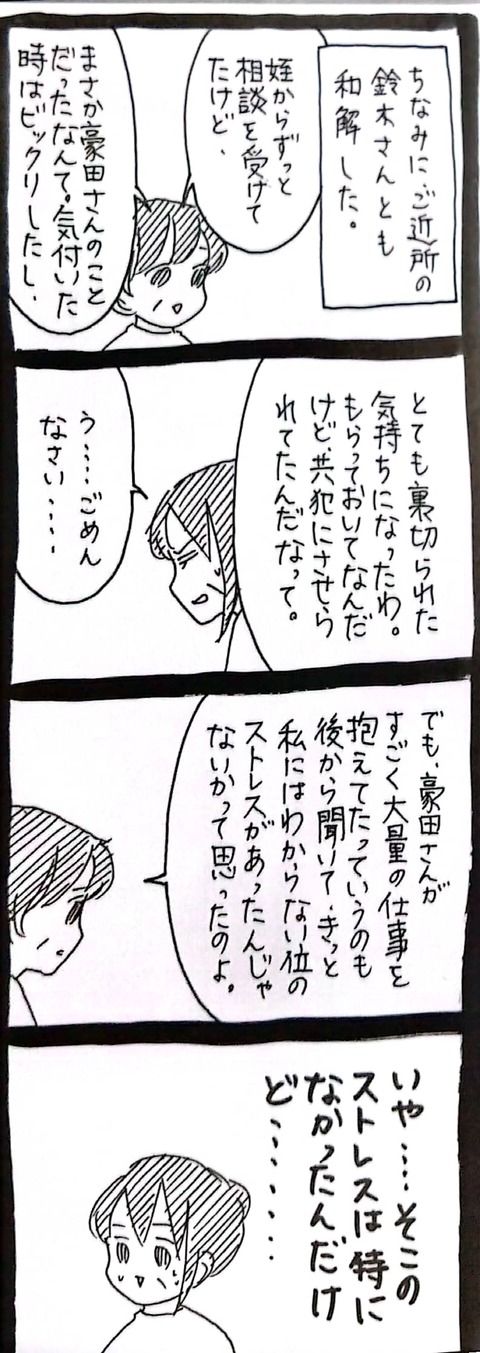 ちなみにご近所の
鈴木さんとも
和解した。
姪からずっと
相談を受けて
たけど、
まさか豪田さんのこと
だったなんて。気付いた
時はビックリしたし、
とても裏切られた
気持ちになったわ。
もらっておいてなんだ
けど、共犯にさせら
れてたんだなって。
う‥‥ごめん
なさい‥‥‥
でも、豪田さんが
すごく大量の仕事を
抱えてたっていうのも
後から聞いて、きっと
私にはわからない位の
ストレスがあったんじゃ
ないかって思ったのよ。
いや‥‥そこの
ストレスは特に
なかったんだけ
ど‥‥‥‥‥